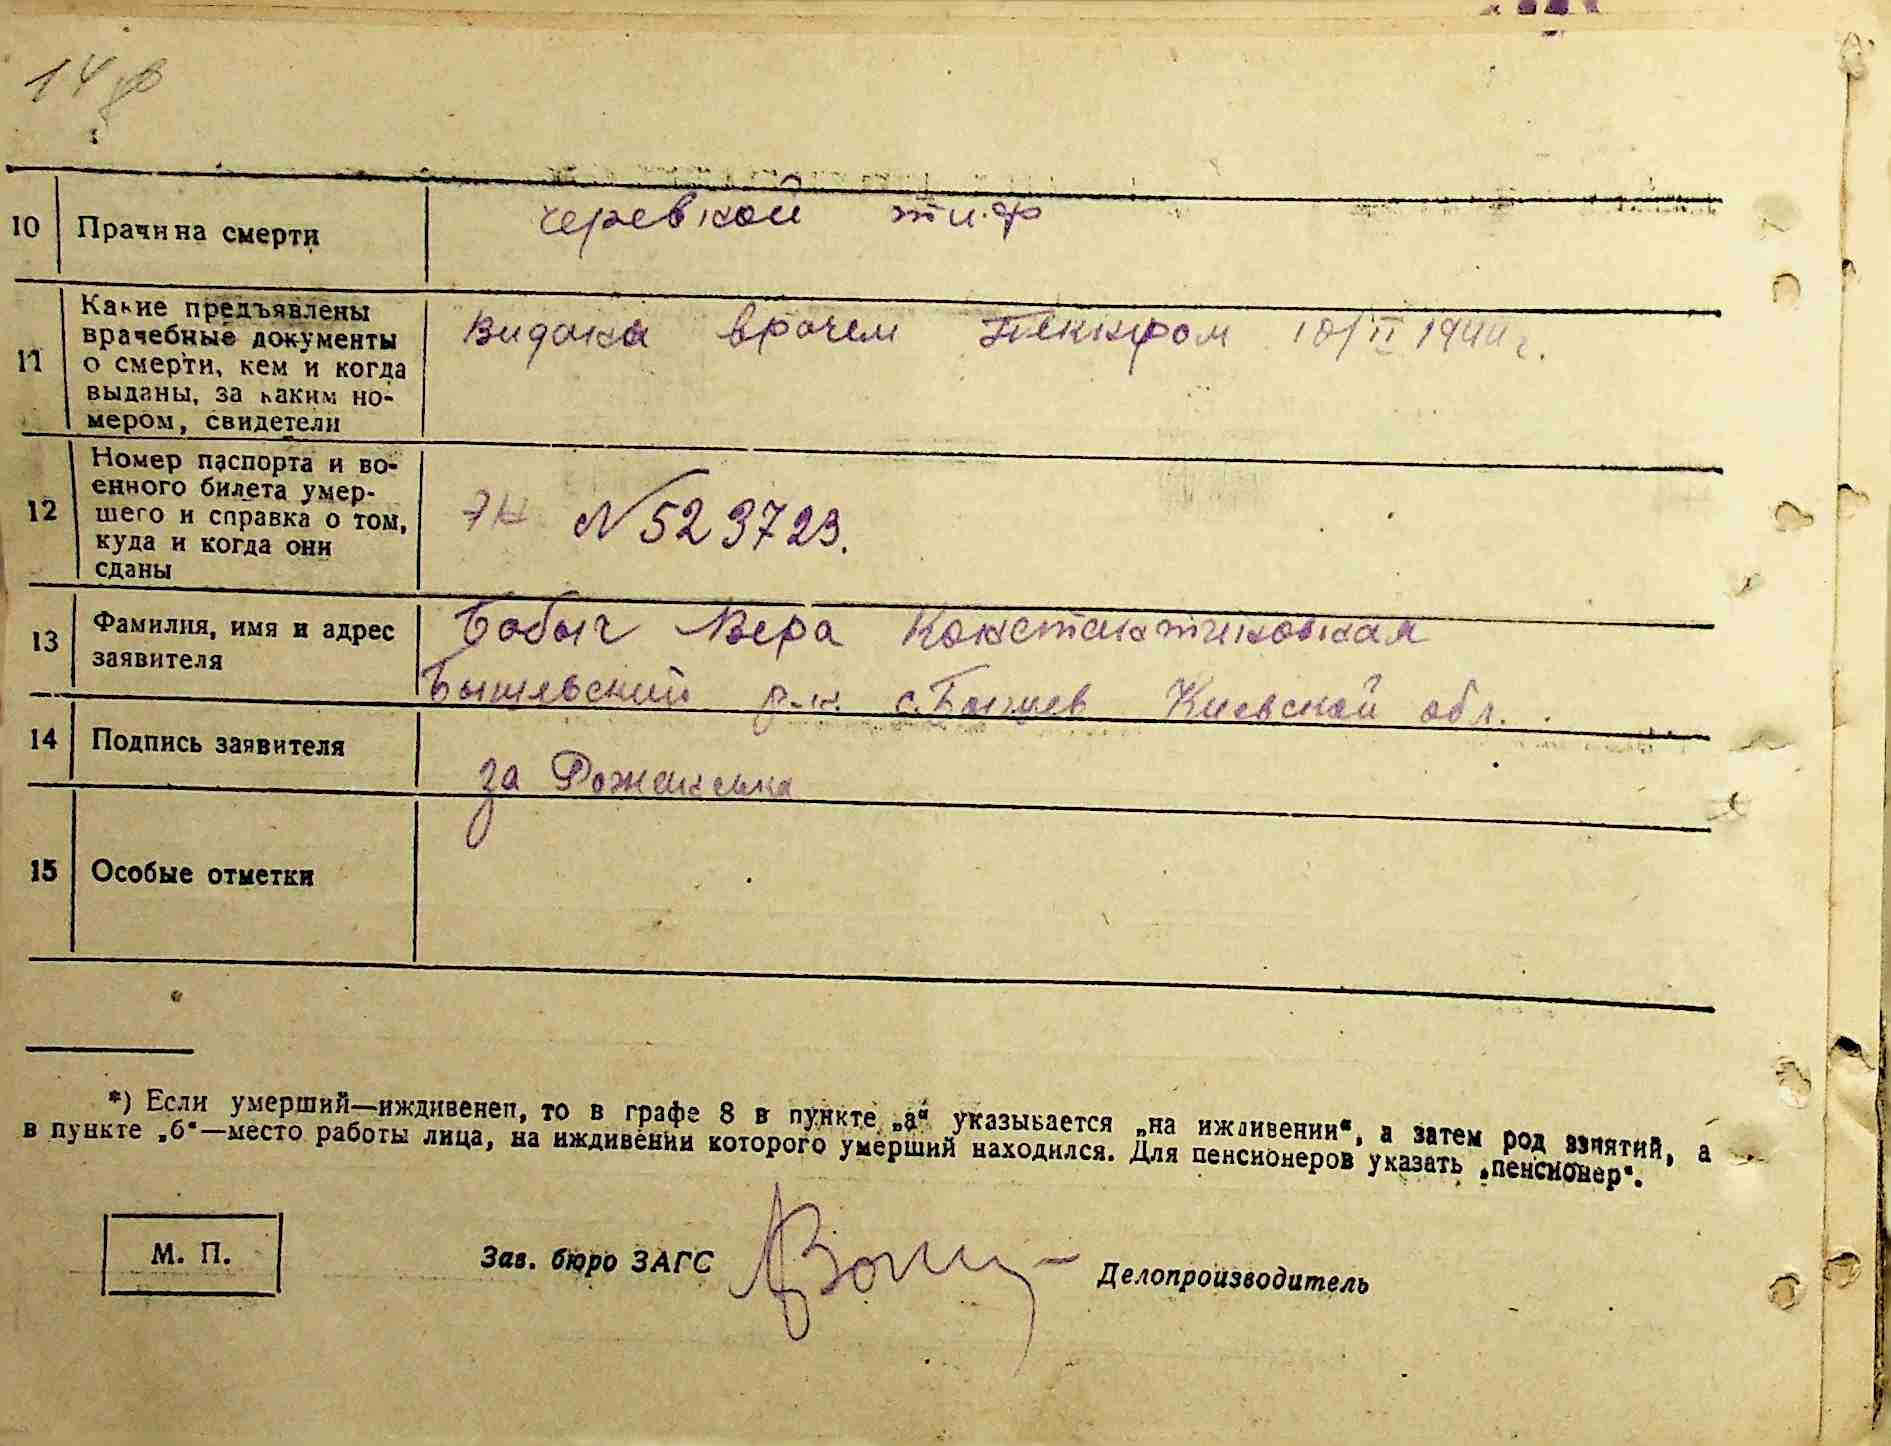 10 Прачина смерти
черевной тиф
11 Какие предъявлены
врачебные документы
о смерти, кем и когда
выданы, за каким но-
мером, свидетели
Видана врачем 10/II 1944 г.
12 Номер паспорта и во-
енного билета умер-
шего и справка о том,
куда и когда они
сданы
№ 523723.
13 Фамилия, имя и адрес
заявителя
Бабыч Вера Константиновная
Бышевский р-н. с. Бышев Киевской обл.
14 Подпись заявителя
за
15 Особые отметки
*) Если умерший—иждивенец, то в графе 8 в пункте „а“ указывается „на иждивении“, а затем род занятий, а
в пункте „б“—место работы лица, на иждивении которого умерший находился. Для пенсионеров указать „пенсионер“.
М. П.
Зав. бюро ЗАГС
Делопроизводитель